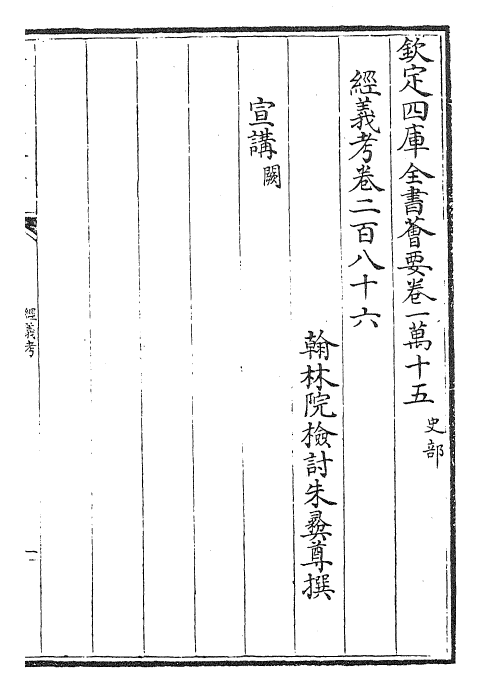 欽定四庫全書薈要卷一萬十五 史部
經義考卷二百八十六
翰林院檢討朱彞尊撰
宣講 闕
經義考
一